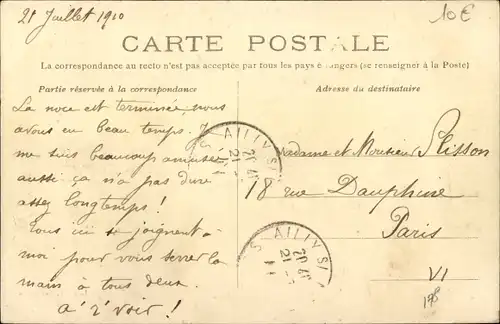 21 Juillet 1910
10€
CARTE POSTALE
La correspondance au recto n'est pas acceptée par tous les pays é angers (se renseigner à la Poste)
Partie réservée à la correspondance
Adresse du destinataire
La noce est terminée, nous
avons eu beau temps. Je
me suis beaucoup amusée
aussi ça n'a pas duré
assez longtemps!
Tous ici se joignent à
moi pour vous serrer la
main à tous deux.
A' 2' voir!
AILLY S
Madame et Monsieur Plisson
18 rue Dauphine
Paris
VI
AILLY S